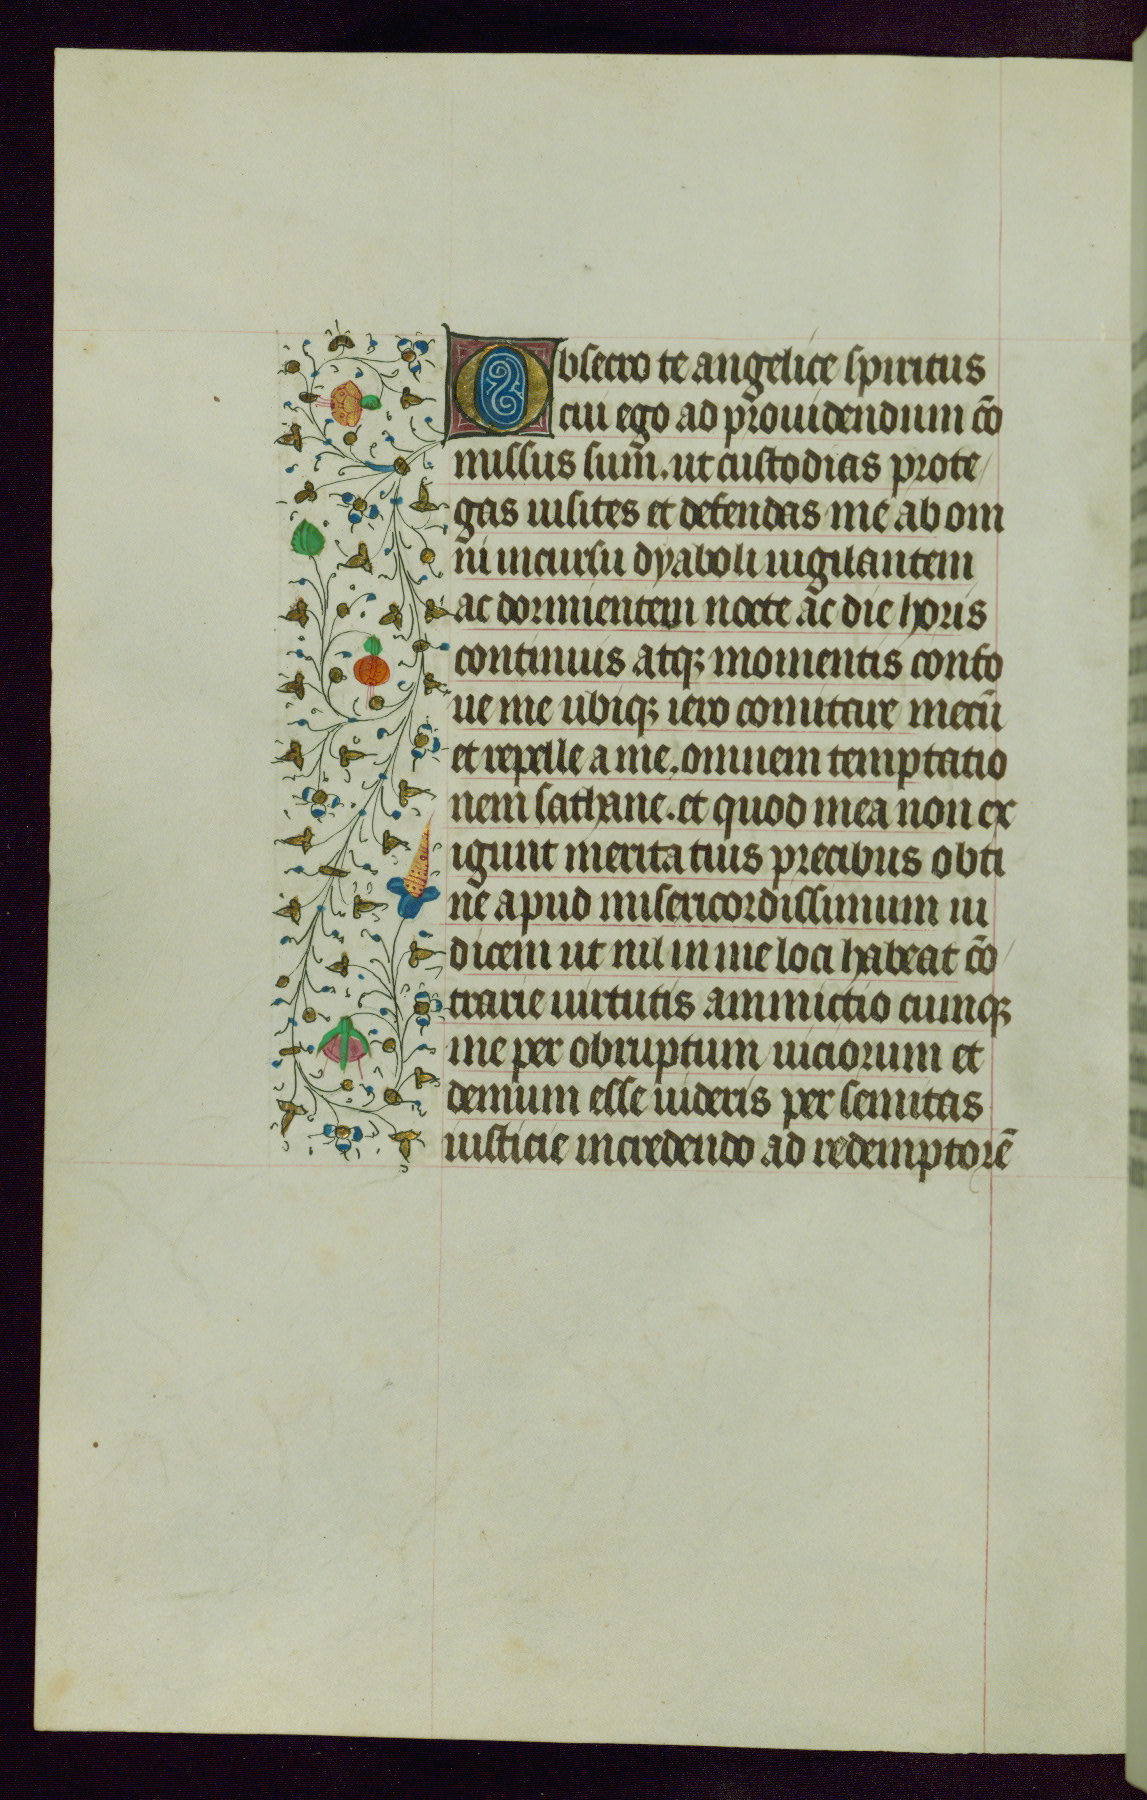 Obsecro te angelice spiritus
cui ego ad prouidendum cō
missus sum̄. ut custodias prote
gas uisites et defendas me ab om
ni incursu dyaboli uigilantem
ac dormientem nocte ac die horis
continuis atq; momentis confo
ue me ubiq; iero comitare mecū
et repelle a me. omnem temptatio
nem sathane. et quod mea non ex
igunt merita tuis precibus obti
ne apud misericordissimum iu
dicem ut nil in me loci habeat cō
trarie uirtutis ammictio cumq;
me per obruptum uiciorum et
demum esse uideris per semitas
iusticie incredendo ad redemptorē